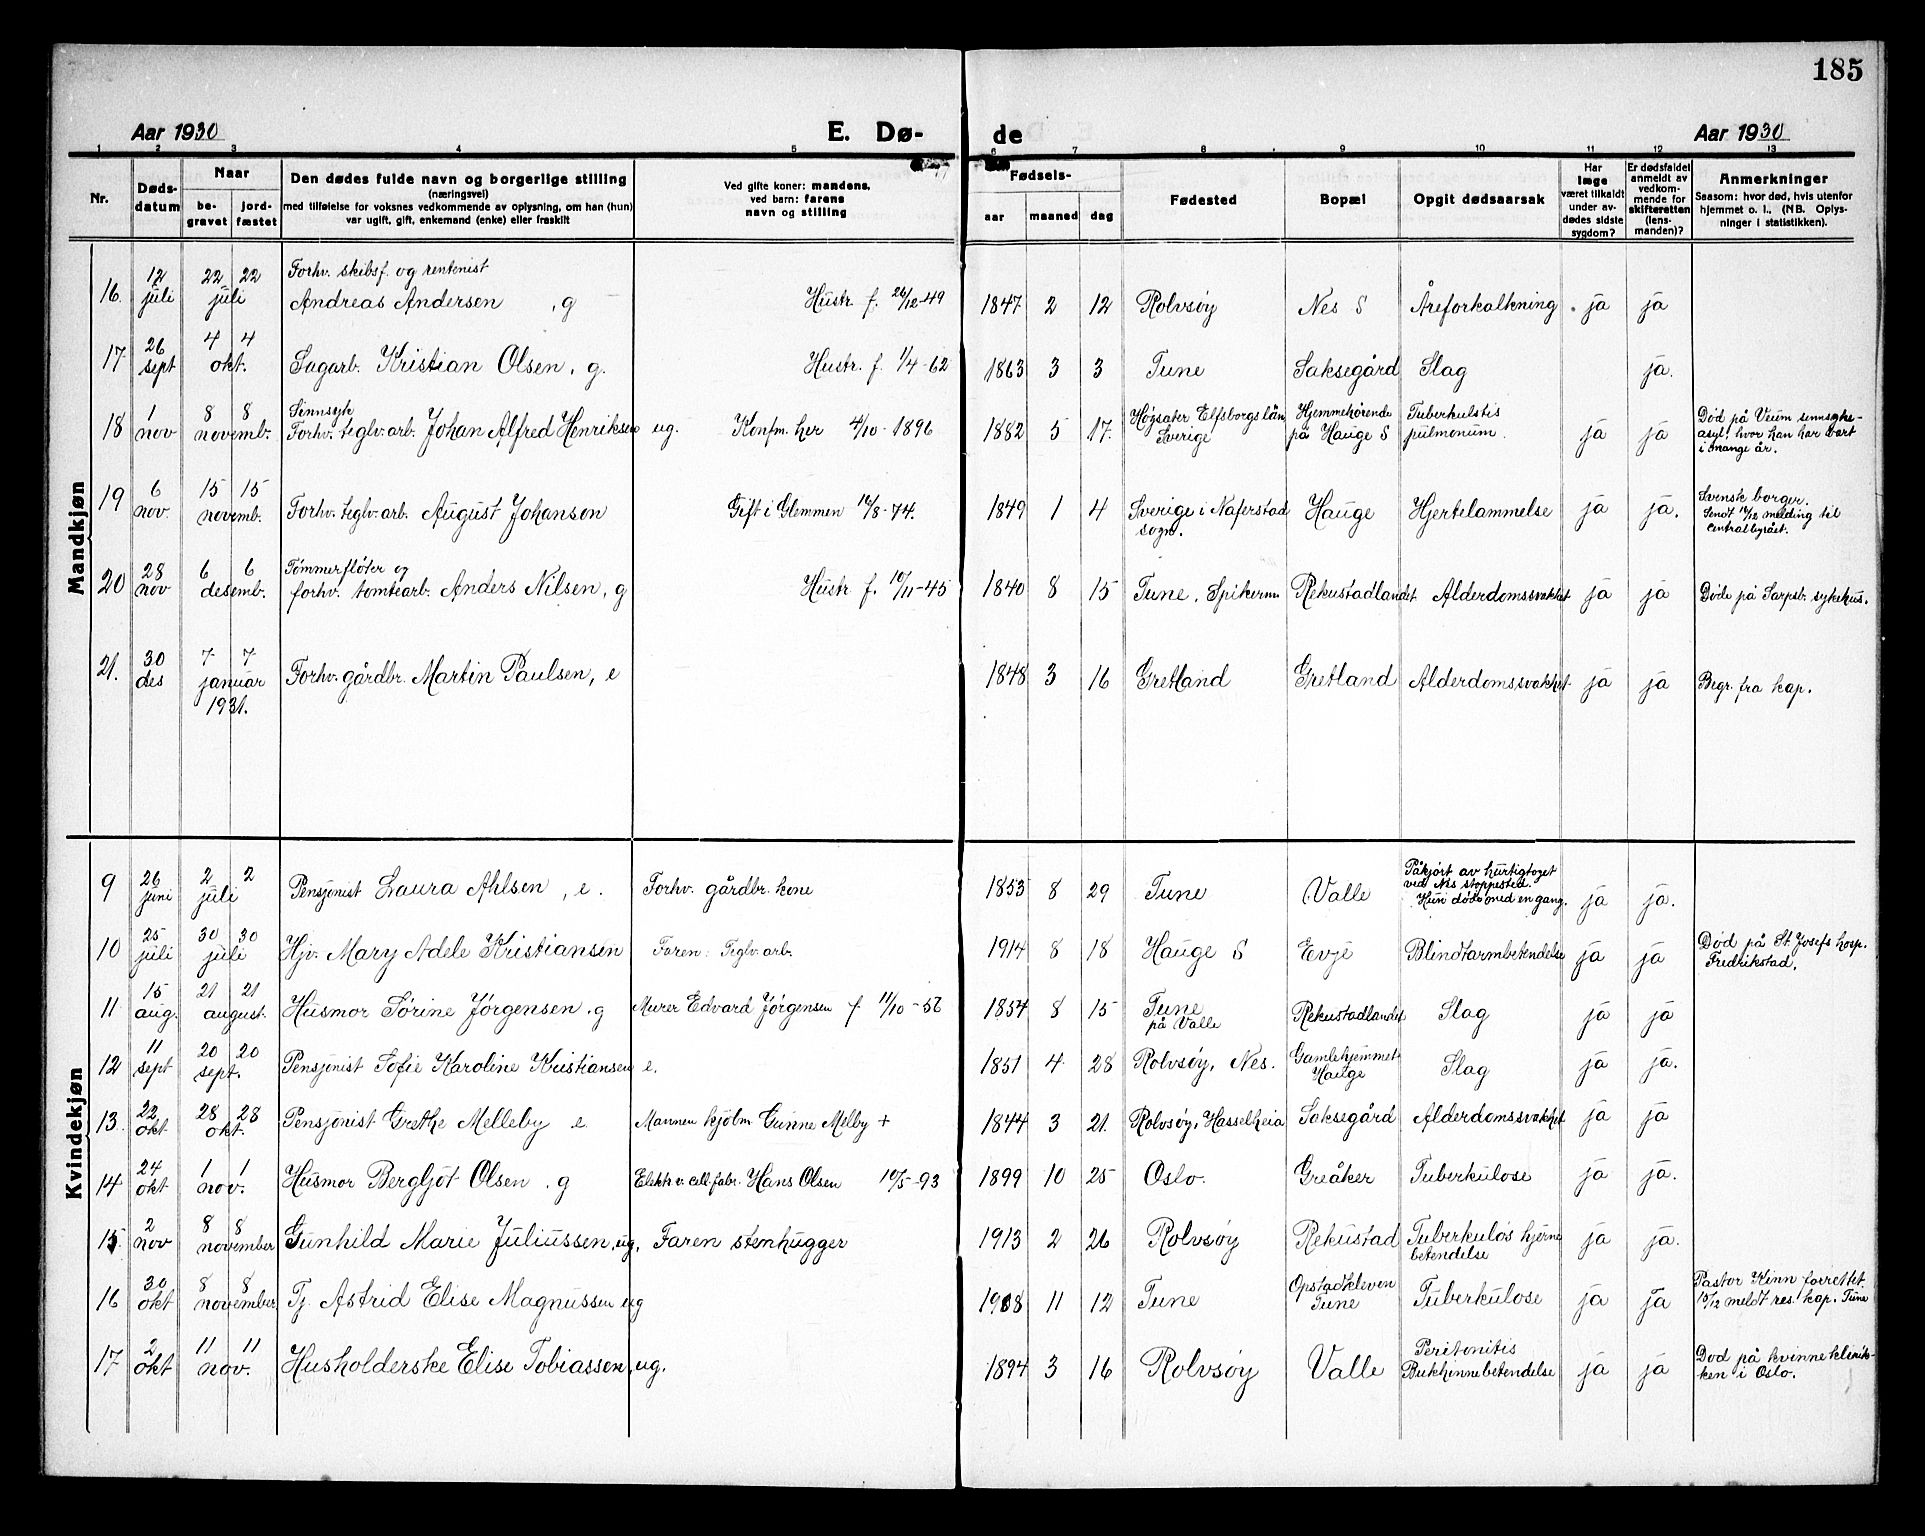 185
Aar 1930
E. Dø-
de
Aar 1930
1 2 3 4 5 6 7 8 9 10 11 12 13
Nr.
Døds-
datum
Naar
be-
gravet
jord-
fæstet
Den dødes fulde navn og borgerlige stilling
(næringsvei)
med tilføielse for voksnes vedkommende av oplysning, om han (hun)
var ugift, gift, enkemand (enke) eller fraskilt
Ved gifte koner: mandens,
ved barn: farens
navn og stilling
Fødsels-
aar maaned dag
Fødested
Bopæl
Opgit dødsaarsak
Har
læge
været tilkaldt
under av-
dødes sidste
sygdom?
Er dødsfaldet
anmeldt av
vedkom-
mende for
skifteretten
(lens-
manden)?
Anmerkninger
Saasom: hvor død, hvis utenfor
hjemmet o. l., (NB. Oplys-
ninger i statistikken).
Mandkjøn
16. 12 juli 22 22 juli Forhv. skibsf. og rentenist
Andreas Andersen , g Hustr. f. 26/12-49 1847 2 12 Rolvsöy Nes S Åreforkalkning. ja ja
17 26 sept 4 4 okt. Sagarb. Kristian Olsen, g. Hustr. f. 1/4-62 1863 3 3 Tune Saksegård Slag ja.
18 1 nov 8 8 novemb. Sinnsyk
Forhv. teglv. arb. Johan Alfred Henriksen ug. Konfm. her 4/10-1896 1882 5 17. Højsäter Elfsborgs län
Sverige Hjemmehörende
på Hauge S Tuberkulstis
pulmonum. ja ja Död på Veum sinnsyke-
asyl, hvor han har vært
i mange år.
19 6 nov. 15 15 novemb. Forhv. teglv. arb. August Johanson Gift i Glemmen 16/8-74. 1849 1 4 Sverige i Naferstad
sogn. Hauge Hjertelammelse ja ja. Svensk borger.
Sendt 12/12 melding til
centralbyrået.
20 28 nov 6 6 desemb. Tömmerflöter og
forhv. tomtearb. Anders Nilsen, g Hustr. f. 10/11-45 1840 8 15 Tune, Spikerum Rekustadlandet Alderdomssvakhet ja ja Døde på Sarpsb. sykehus.
21. 30 des 7 7 januar
1931. Forhv. gårdbr. Martin Paulsen, e 1848 3 16 Gretland Gretland Alderdomssvakhet. ja ja Begr. fra kap.
Kvindekjøn
9 26 juni 2 2 juli Pensjonist Laura Ahlsen , e. Forhv. gårdbr. kone 1853 8 29 Tune Valle Påkjört av hurtigtoget
ved Nes stoppested.
Hun döde med en gang. ja ja.
10 25 juli 30 30 juli Hjv. Mary Adele Kristiansen Faren: Teglv. arb. 1914 8 18 Hauge S Evje Blindtarmbetendelse ja ja Død på St. Josefs hosp.
Fredrikstad.
11 15 aug. 21 21 august. Husmor Sörine Jörgensen , g Murer Edvard Jörgensen f 11/10-56 1854 8 15 Tune
på Valle Rekustadlandet Slag ja ja
12 11 sept 20 20 sept. Pensjonist Sofie Karoline Kristiansen e. 1851 4 28 Rolvsöy, Nes. Gamlehjemmet
Hauge Slag ja ja.
13. 22 okt. 28 28 okt. Pensjonist Grethe Melleby e Mannen kjölm. Gunne Melby + 1844 3 21. Rolvsöy, Hasselheia Saksegård Alderdomssvakhet ja ja
14 24 okt 1 1 nov. Husmor Bergljot Olsen , g Elektr. v. cell. fabr. Hans Olsen 10/5-93 1899 10 25 Oslo. Greåker Tuberkulose ja ja.
15. 2 nov 8 8 november Gunhild Marie Juliussen, ug. Faren stenhugger 1913 2 26 Rolvsöy Rekustad Tuberkulös hjerne
betendelse ja ja.
16 30 okt 8 8 november Tj. Astrid Elise Magnussen ug 1908 11 12 Tune Opstadkleven
Tune Tuberkulose ja ja Pastor Kinn forrettet
15/12 meldt res. kap. Tune
17 2 okt 11 11 nov. Husholderske Elise Tobiassen, ug. 1894 3 16 Rolvsöy Valle Peritonitis
Bukhinnebetendelse ja ja Död på kvinneklinik-
ken i Oslo.